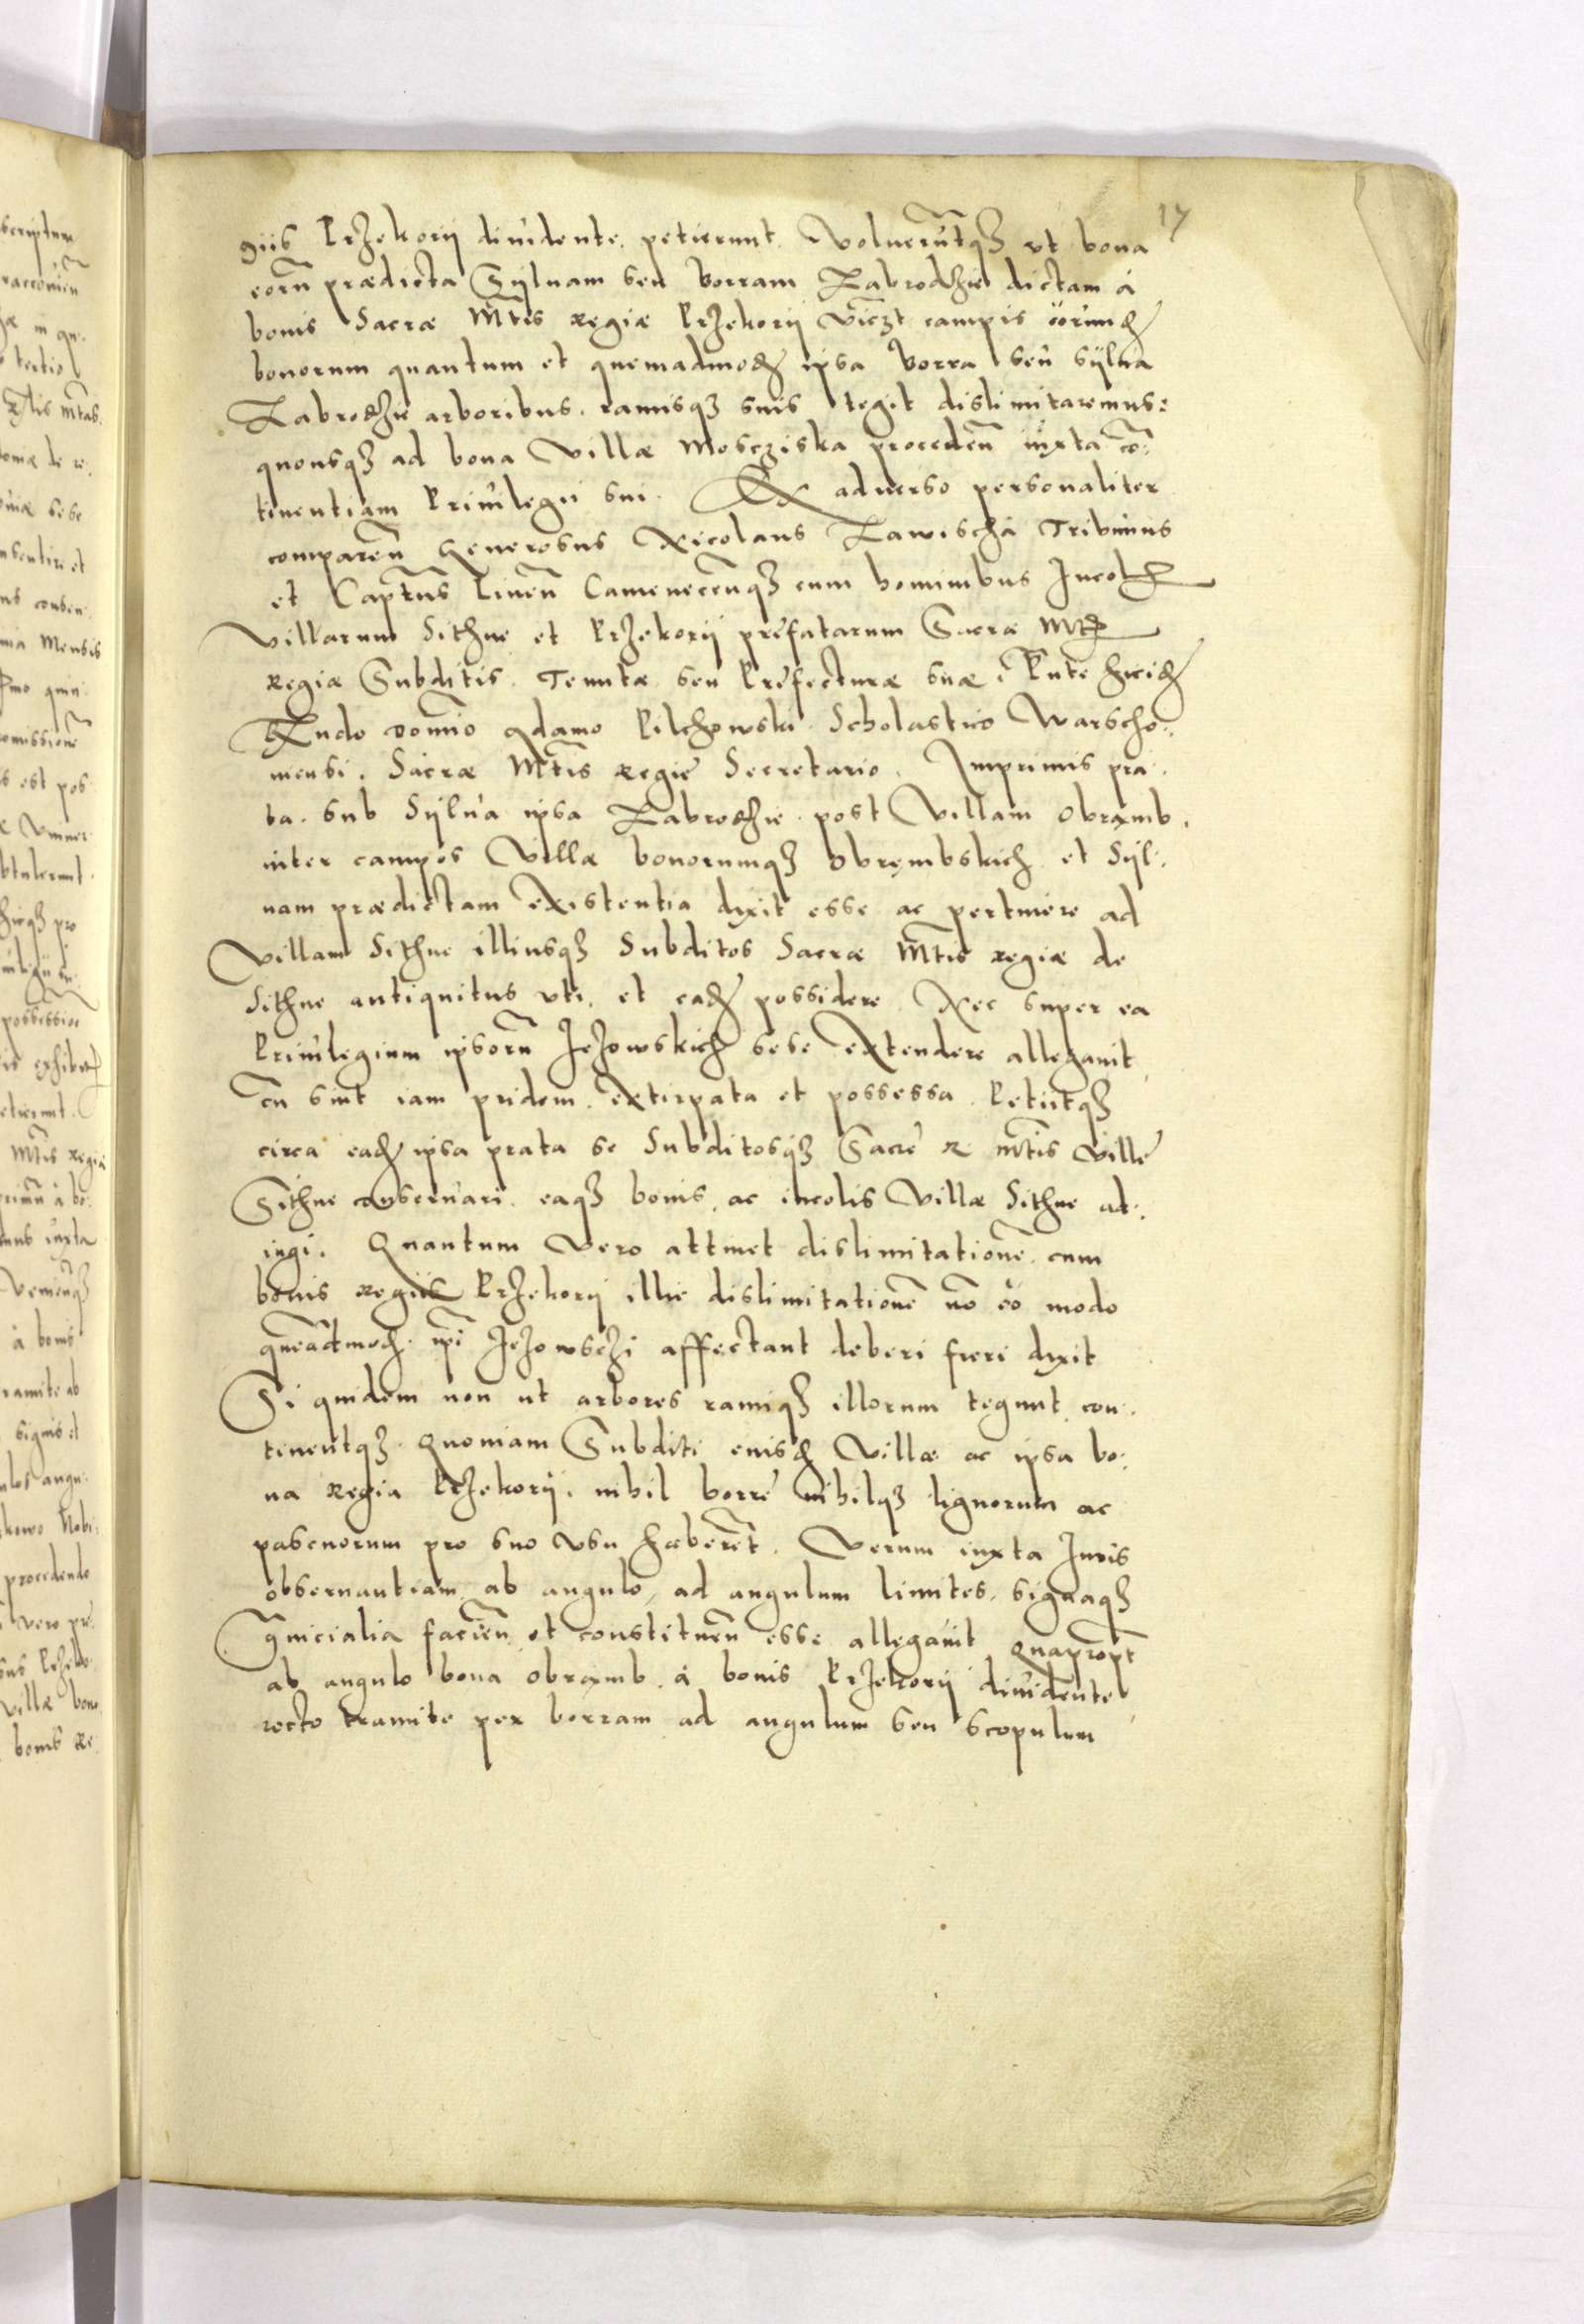 17
giis Przekorij diuidente. petierunt. Voluerūtqʒ vt bona
eorū prædicta Syluam seu Borram Zabrodzie dictam á
bonis Sacræ M̃tis Regiæ Przekorij videlzt campis eorund
bonorum quantum et quemadmod ipsa Borra seu sylua
Zabrodzie arboribus. ramisqʒ suis tegit dislimitaremus:
quousqʒ ad bona Villæ Mosciska proceden̄ iuxta co̅:
tinentiam Priuilegii sui. Ex aduerso personaliter
comparen̄ Generosus Nicolaus Zawischa Tribunus
et Capt̄ns Liuen̄ Camenecen̄qʒ cum hominibus Incol
Villarum Sithne et Przekorij prefatarum Sacræ Mt
Regiæ Subditis. Tenutæ seu Prefecturæ suæ.
domīo Adamo Pilchowski Scholastico Warscho:
uiensi. Sacræ M̃tis Regie Secretario. Imprimis pra:
ta. sub Sylua ipsa Zabrodzie post Villam Obramb.
inter campos Villæ bonorumqʒ Obrembskich et Syl:
uam prædictam existentia dixit esse ac pertinere ad
Villam Sithne illiusqʒ Subditos Sacræ M̃tis Regiæ de
Sithne antiquitus vti. et ead possidere. Nec super ea
Priuilegium ipsorū Jezowskich sese extendere allegauit
cū sint iam pridem. extirpata et possessa. Petiitqʒ
circa ead ipsa prata se Subditosqʒ Sacre R M̃tis Ville
Sithne conseruari. eaqʒ bonis. ac incolis Villæ Sithne ad:
iugi. Quantum vero attinet dislimitatione̅. cum
bonis Regiis Przekorij illic dislimitatione̅ no̅ eo modo
que̅admod. ip̅i Jezowsczi affectant deberi fieri dixit
Si quidem non ut arbores ramiqʒ illorum tegunt con:
tinentqʒ. Quoniam Subditi eiusd Villæ ac ipsa bo:
na Regia Przekorij. nihil borre nihilqʒ lignorum ac
pascuorum pro suo vsu haberēt. Verum iuxta Juris
obseruantiam ab angulo, ad angulum limites. signaqʒ
Gnicialia facien̄ et constituen̄ esse allegauit Quapropt
ab angulo bona Obramb. á bonis Przekorij diuidente
recto tramite per borram ad angulum seu scopulum